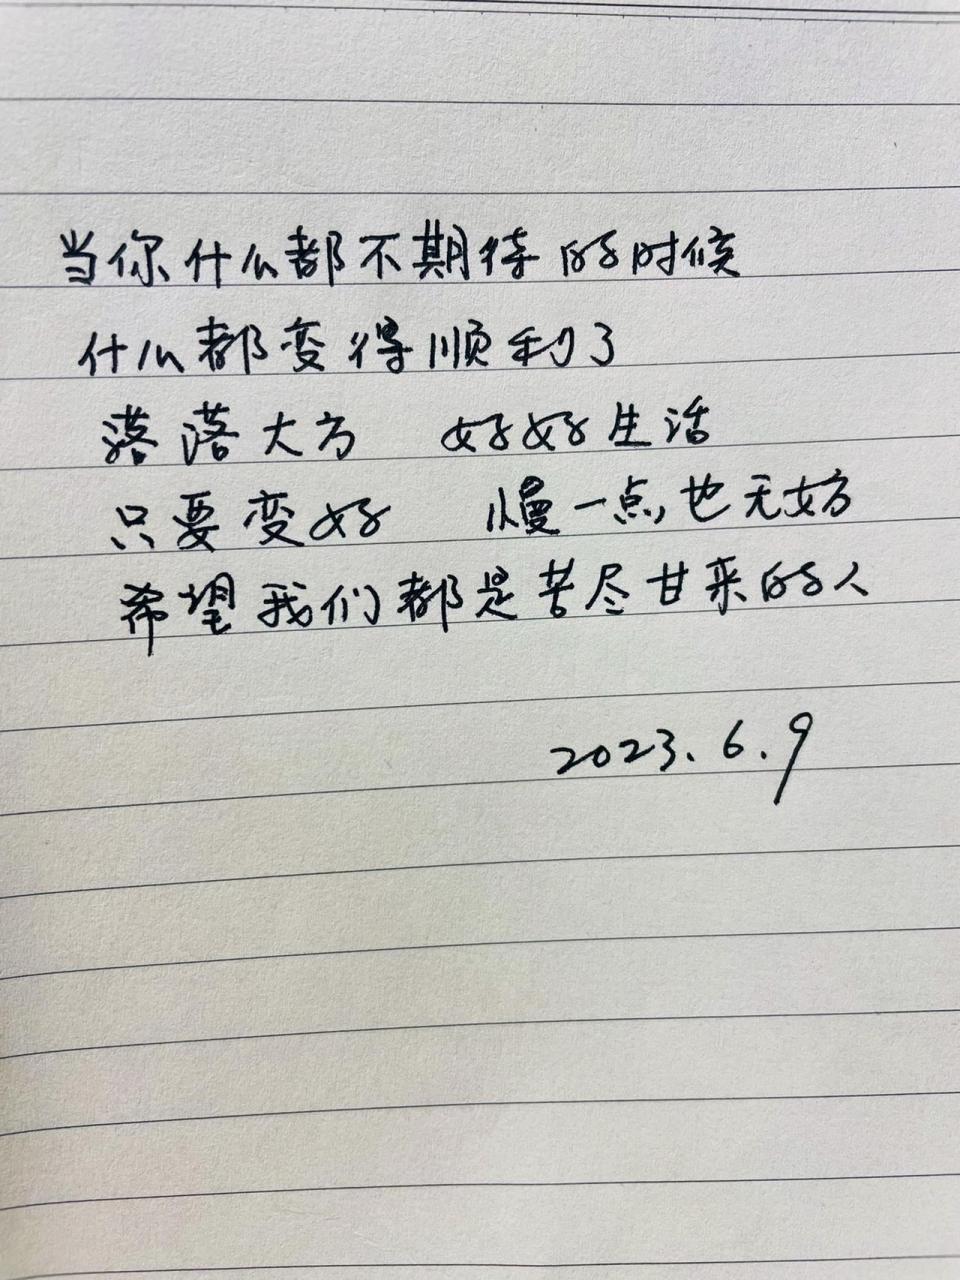 当你什么都不期待的时候
什么都变得顺利了
落落大方 好好生活
只要变好 慢一点也无妨
希望我们都是苦尽甘来的人
2023.6.9